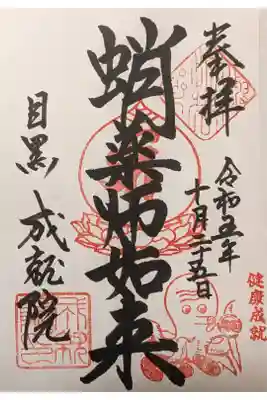 奉拝
令和五年
十月二十五日
蛸薬師如来
目黒 成就院
健康成就